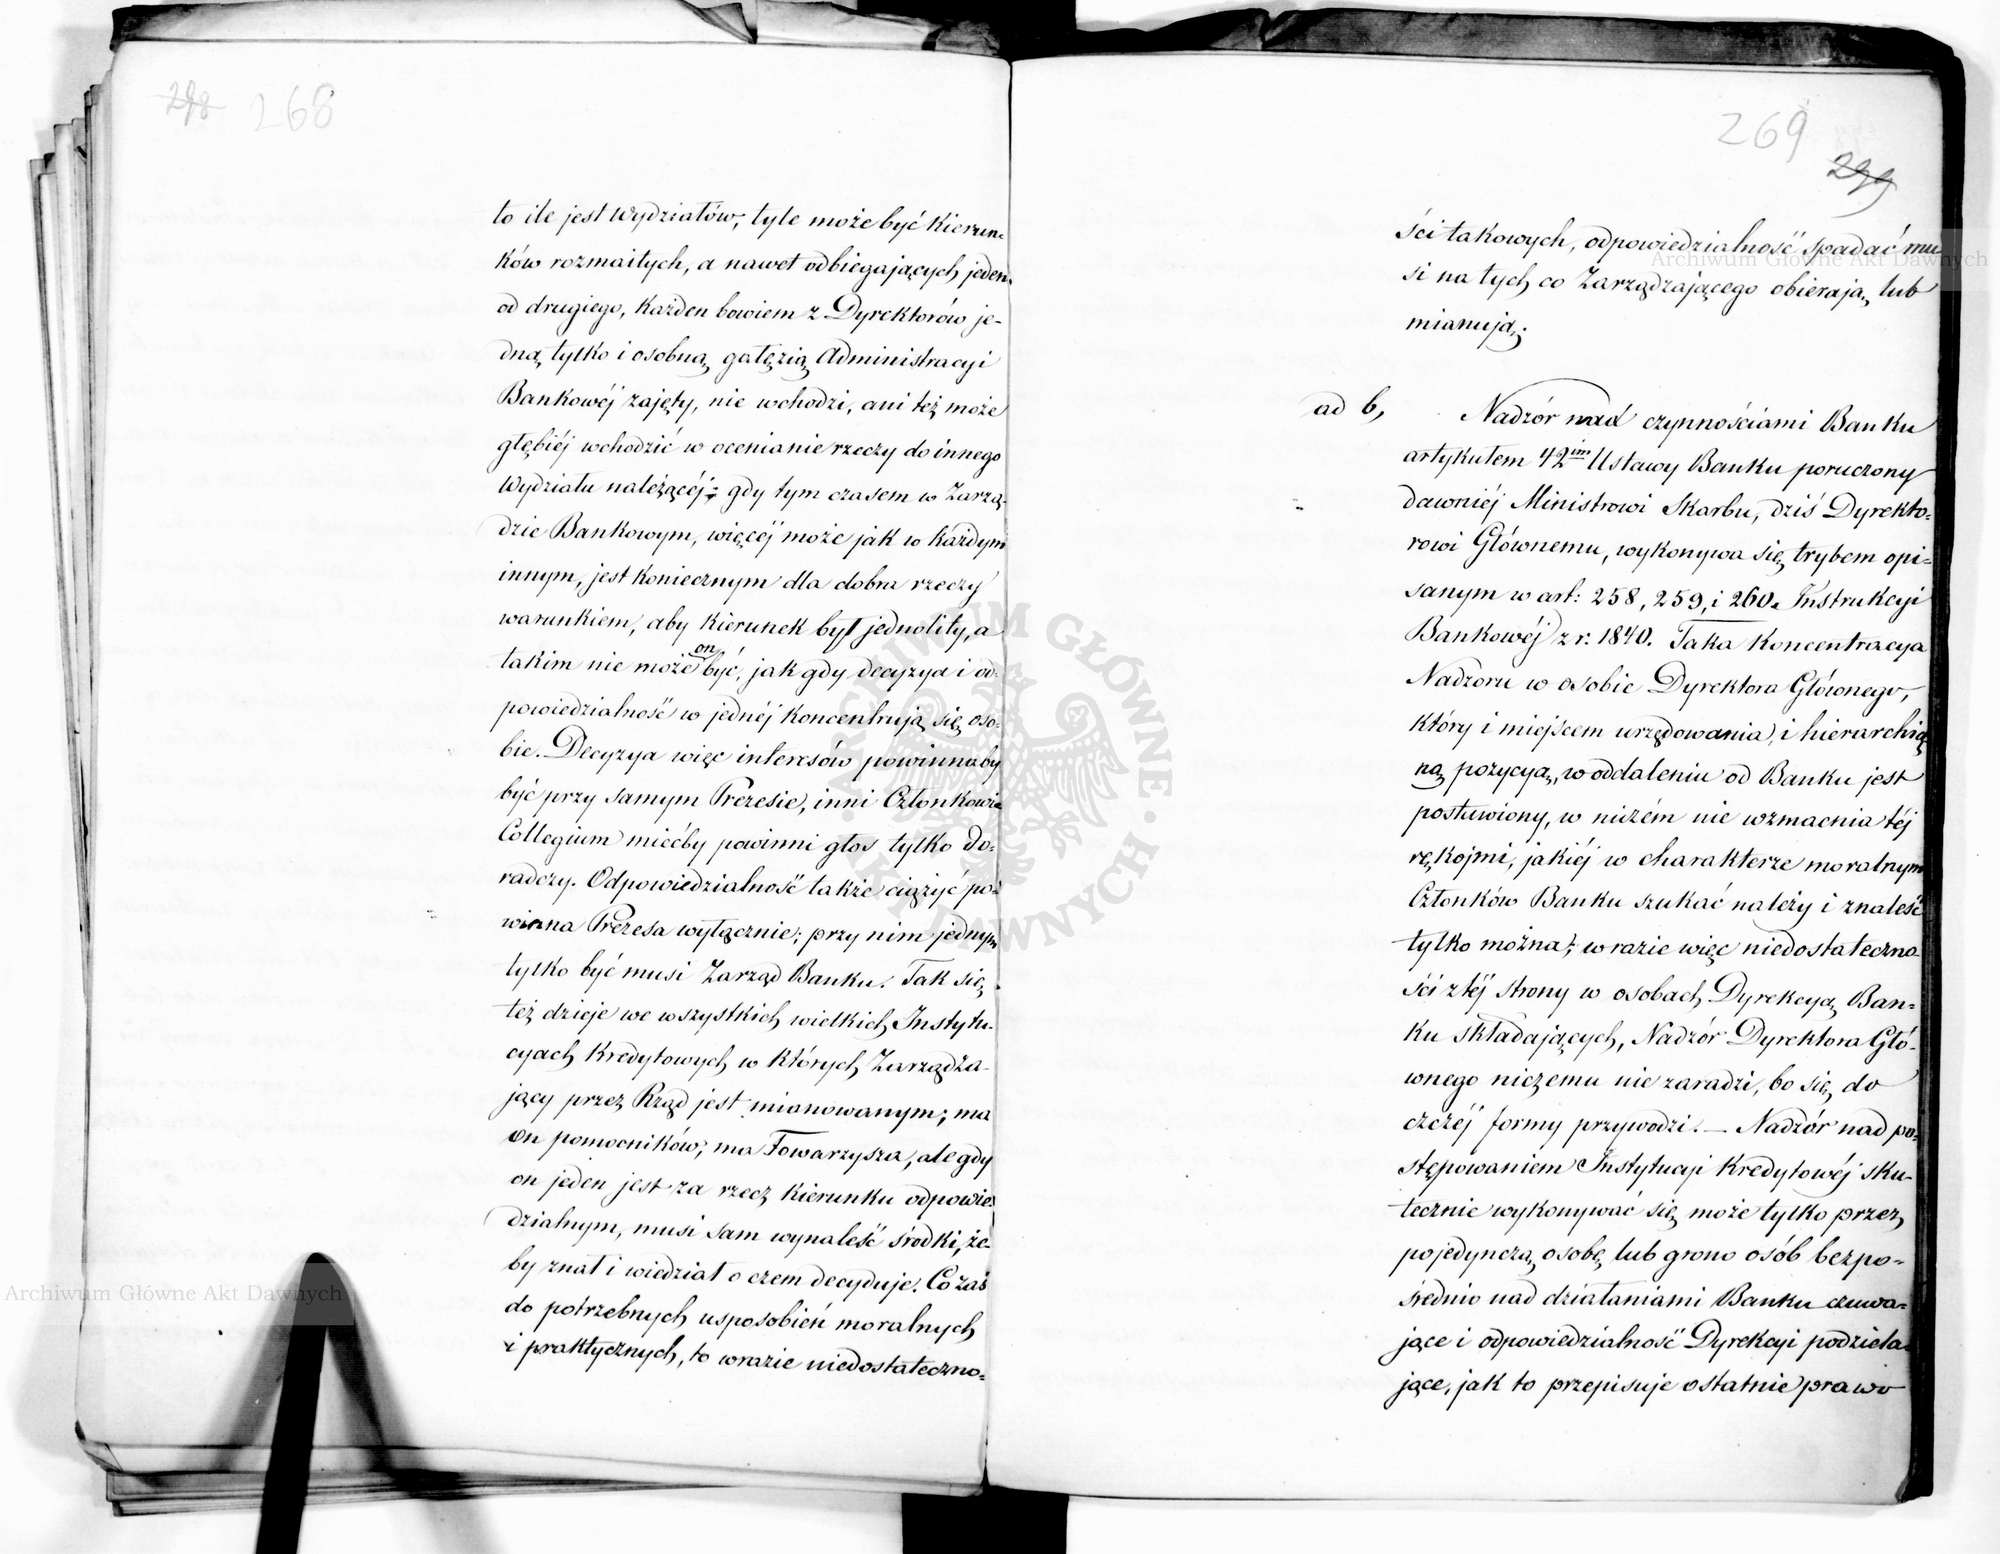 298 268
to ile jest Wydziałów, tyle może być Kierun=
ków rozmaitych, a nawet odbiegających jeden
od drugiego, Każden bowiem z Dyrektorów je-
dną tylko i osobną gałęzią Administracyi
Bankowéj zajęty, nie wchodzi, ani też może
głębiéj wchodzić w ocenianie rzeczy do innego
Wydziału należącéj; gdy tym czasem w Zarzą-
dzie Bankowym, więcéj może jak w każdym
innym, jest Koniecznym dla dobra rzeczy
warunkiem, aby Kierunek był jednolity, a
takim nie może on być, jak gdy decyzya i od-
powiedzialność w jednéj Koncentrują się oso-
bie. Decyzya więc interesów powinnaby
być przy samym Prezesie, inni Członkowie
Collegium miećby powinni głos tylko do-
radczy. Odpowiedzialność także ciążyć po-
winna Prezesa wyłącznie; przy nim jednym
tylko być musi Zarząd Banku. Tak się
też dzieje we wszystkich wielkich Instytu-
cyach Kredytowych w których Zarządza-
jący przez Rząd jest mianowanym; ma
on pomocników, ma Towarzysza, ale gdy
on jeden jest za rzecz Kierunku odpowie-
dzialnym, musi sam wynaleść środki, że-
by znał i wiedział o czem decyduje. Co zaś
do potrzebnych usposobień moralnych
i praktycznych, to w razie niedostateczno=
269
299
ści takowych, odpowiedzialność spadać mu
si na tych co Zarządzającego obierają lub
mianują.
ad b, Nadzór nad czynnościami Banku
artykułem 42im Ustawy Banku poruczony
dawniéj Ministrowi Skarbu, dziś Dyrekto-
rowi Głównemu, wykonywa się trybem opi-
sanym w art: 258, 259, i 260. Instrukcyi
Bankowéj z r: 1840. Taka Koncentracya
Nadzoru w osobie Dyrektora Głównego,
który i miejscem urzędowania, i hierarchicz
ną pozycyą, w oddaleniu od Banku jest
postawiony, w niczém nie wzmacnia téj
rękojmi, jakiéj w charakterze moralnym
Członków Banku szukać należy i znaleść
tylko można; w razie więc niedostateczno-
ści z téj strony w osobach Dyrekcyą Ban-
ku składających, Nadzór Dyrektora Głó-
wnego niczemu nie zaradzi, bo się do
czczéj formy przywodzi. — Nadzór nad po-
stępowaniem Instytucyi Kredytowéj sku-
tecznie wykonywać się może tylko przez
pojedynczą osobę, lub grono osób bezpo-
średnio nad działaniami Banku czuwa-
jące i odpowiedzialność Dyrekcyi podziela-
jące, jak to przepisuje ostatnie prawo
Archiwum Główne Akt Dawnych
Archiwum Główne Akt Dawnych
ARCHIWUM GŁÓWNE AKT DAWNYCH